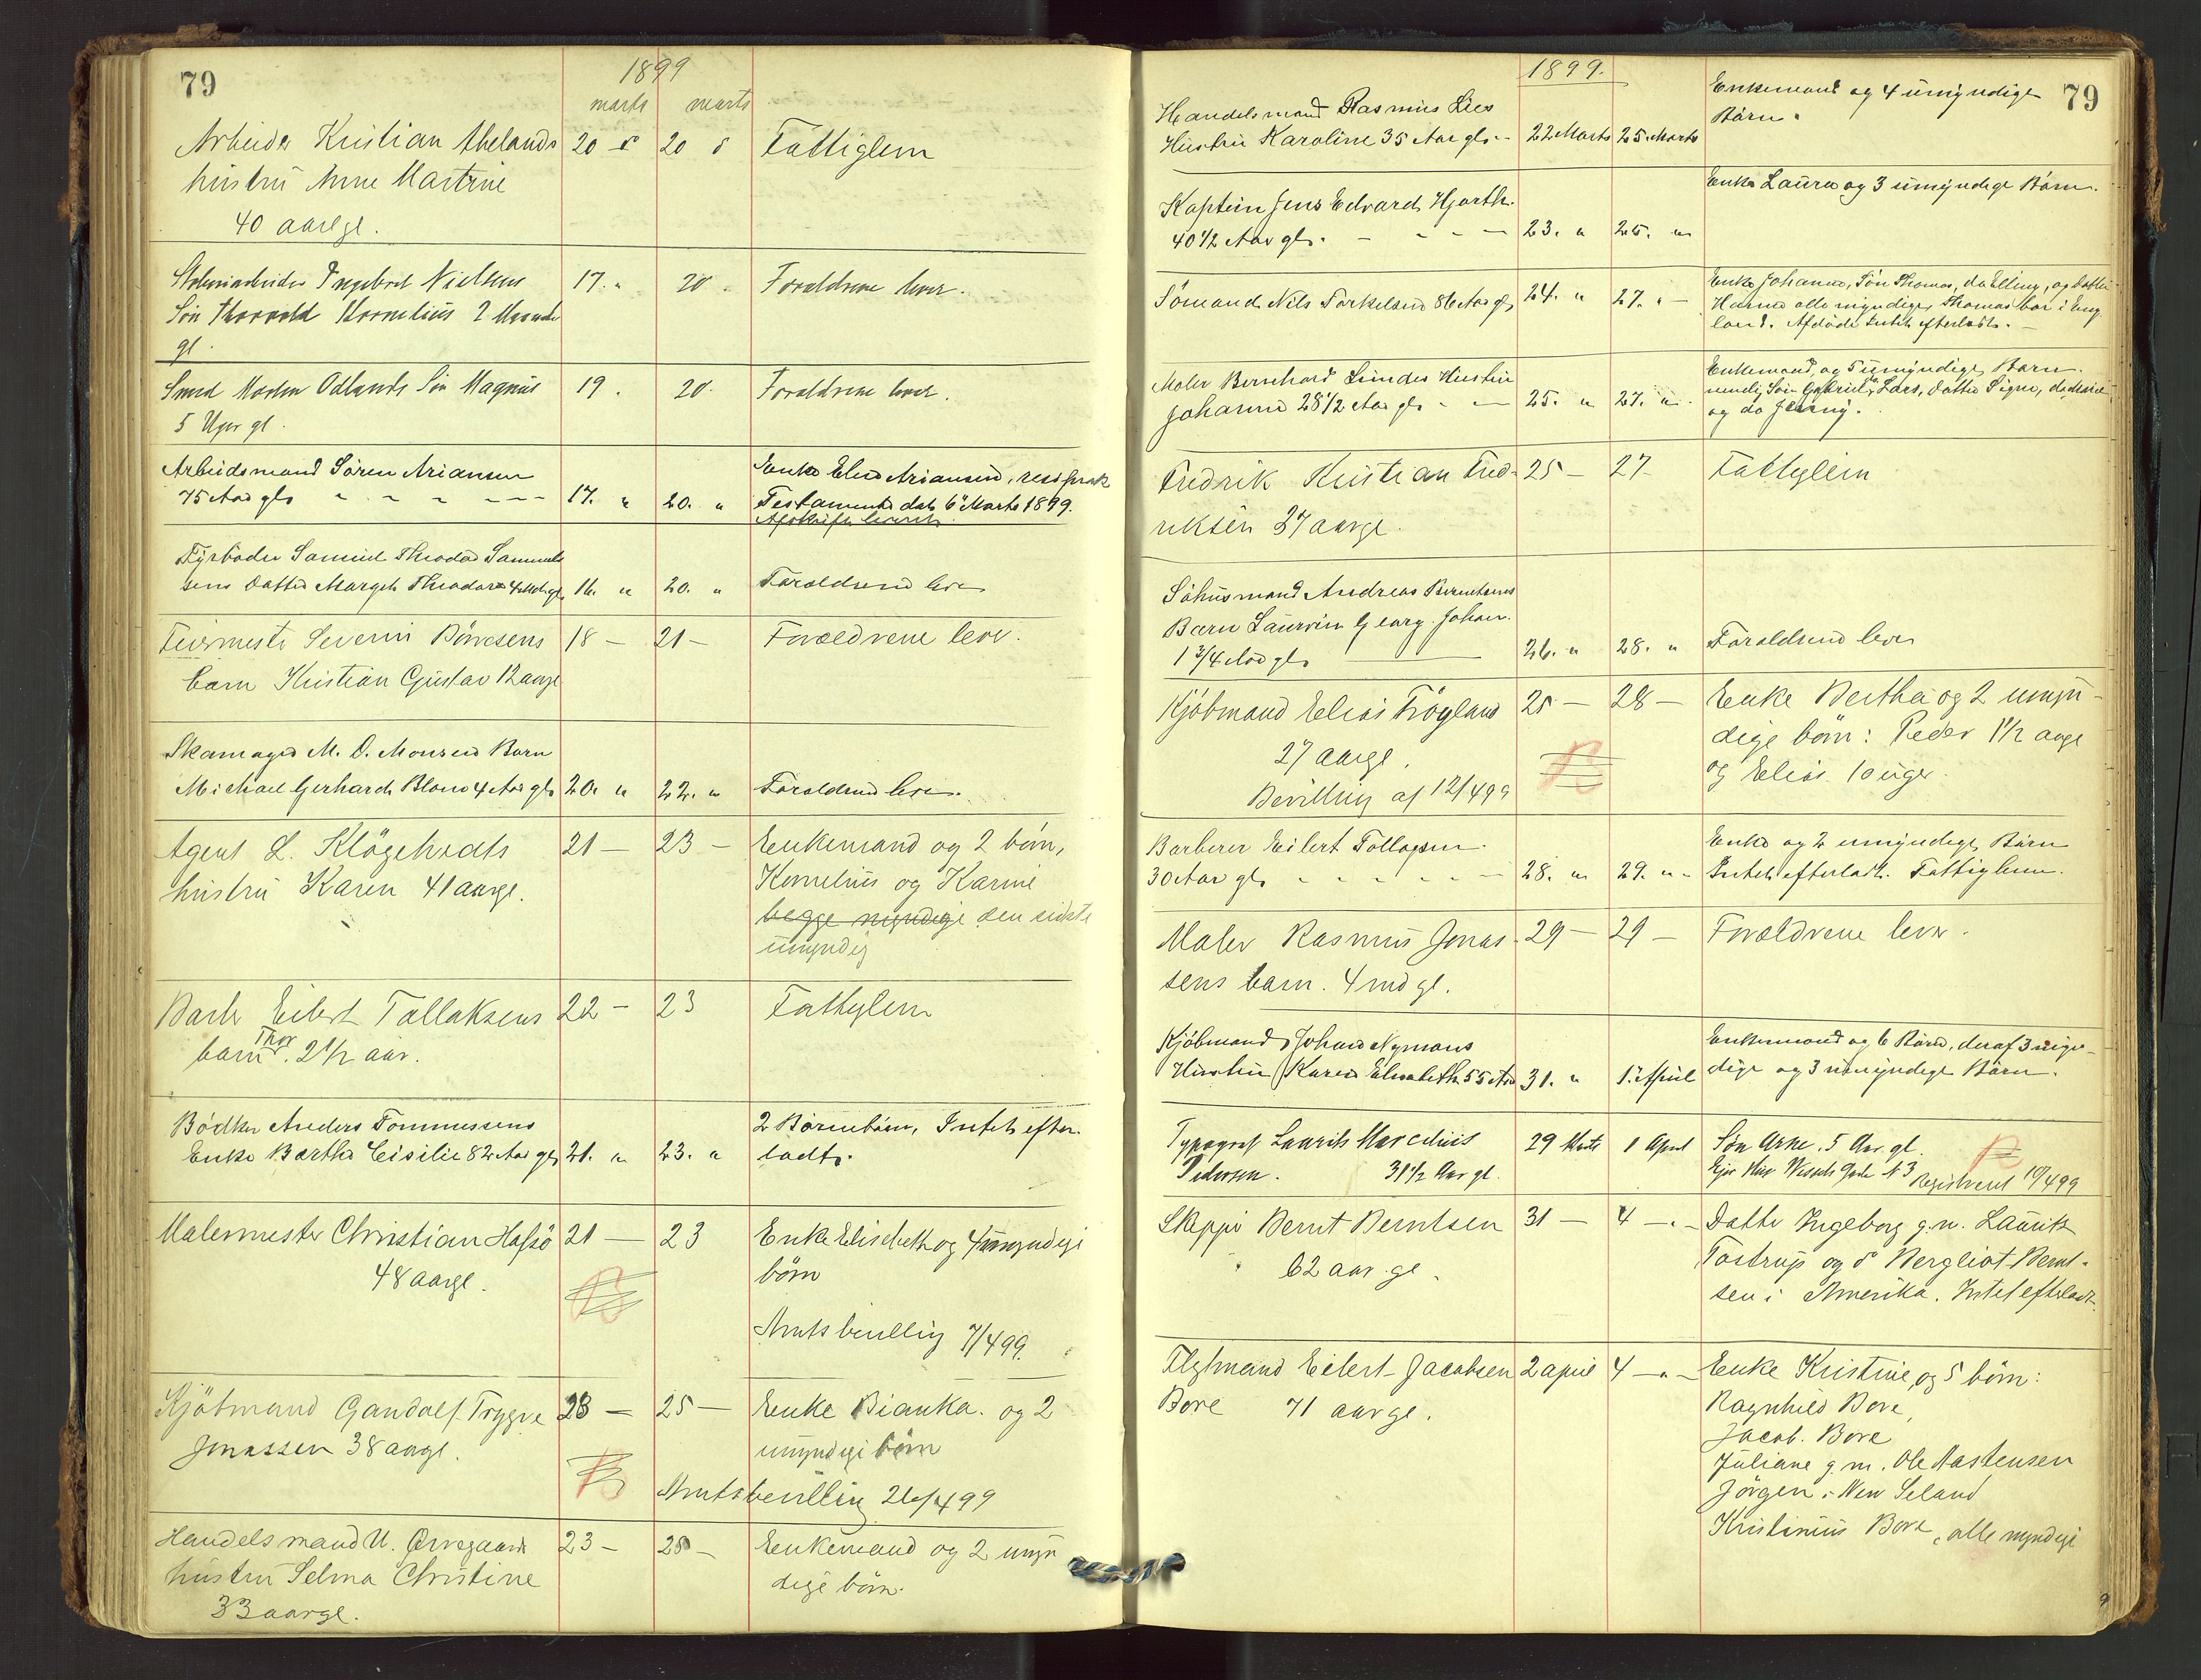 79
1899
marts marts
Arbeider Kristian Aheland's 20 d 20 d Fattiglem
hustru Anne Martine
40 aar gl.
Ingebret Nielsens 17. " 20 " Forældrene lever.
Søn Thorvald Kornelius 2 Maaneder
gl.
Smed Morten Odlands Søn Magnus 19. 20. Forældrene lever.
5 Uger gl.
Arbeidsmand Sören Ariansen Enke Elen Ariansen, resiprok
75 Aar gl. 17. " 20. " Testamente dat. 6te Marts 1899.
Afskrift leveret.
Fyrbøder Samuel Theodor Samuel-
sens Datter Margit Theodora 4 Md. gl. 16. " 20. " Forældrene lever
Feiermester Severin Börresens 18 — 21 — Forældrene lever.
barn Kristian Gustav 12 aar gl
Skomager M. O. Monsens Barn
Michael Gerhard Blom 4 Aar gl. 20. " 22. " Forældrene lever.
Agent L. Klögetvedts 21 — 23 — Enkemand og 2 börn,
hustru Karen 41 aar gl. Kornelius og Karine
begge myndige den sidste
umyndig
Barber Eilert Tallaksens 22 — 23 Fattiglem
barn Thor. 2 1/2 aar.
Bödker Anders Tommessens 2 Börnebörn, Intet efter-
Enke Bertha Cisilie 82 Aar gl. 21. " 23. " ladt.
Malermester Christian Hafsö 21 — 23 Enke Elisabeth og 4 umyndige
48 aar gl. börn
Amtsbevilling 7/4 99.
Kjöbmand Gandolf Trygve 23 — 25 — Enke Bianka og 2
Jonassen 38 aar gl. umyndige börn
Amtsbevilling 26/4 99
Handelsmand U. Qvregaards 23 — 25 — Enkemand og 2 umyn-
hustru Selma Christine dige börn.
33 aar gl.
1899.
79
Handelsmand Rasmus Lies Enkemand og 4 umyndige
Hustru Karoline 35 Aar gl. 22 Marts 25. Marts Börn.
Kaptein Jens Edvard Hjorth. Enke Laura og 3 umyndige Börn.
40 1/2 Aar gl. 23. " 25. "
Sömand Nils Torkelsen 86 Aar gl. 24. " 27. " Enke Johanne, Sön Thomas, do Elling, og Datter
Hanna alle myndige, Thomas bor i Eng-
land. Afdöde Intet efterladt.
Maler Bernhard Lindes Hustru Enkemand, og 5 umyndige Barn.
Johanne 28 1/2 Aar gl. 25. " 27. " nemlig Sön Gabriel, do Lars, Datter Signe, do
og do Jenny.
Fredrik Kristian Fred- 25 — 27 Fattiglem
riksen 37 aar gl.
Söhusmand Andreas Berntsens
Barn Laurin Georg Johan.
1 3/4 Aar gl. 26. " 28. " Forældrene lever
Kjöbmand Elias Tröyland 25 — 28 — Enke Bertha og 2 umyn-
27 aar gl. dige börn: Peder 1 1/2 aar gl
Bevilling af 12/4 99 og Elias 10 uger.
Barberer Eilert Tollagsen. Enke og 2 umyndige Börn
30 Aar gl. 28. " 29. " Intet efterladt. Fattiglem.
Maler Rasmus Jonas- 29 — 29 — Forældrene lever.
sens barn. 4 md gl.
Kjöbmand Johan Nymans Enkemand og 6 Börn, deraf 3 myn-
Hustru Karen Elisabeth 55 Aar 31. " 1. April dige og 3 umyndige Börn.
Typograf Laurits Marcelius 29 Marts 1 April Søn Arne, 5 Aar gl.
Pedersen. 31 1/2 Aar gl. Ejer Hus Wessels Gade N 3 Registreret 10/4 99
Skipper Bernt Berntsen 31 — 4 — " — Datter Ingeborg g. m. Laurits
62 aar gl. Tostrup og d Bergliot Bernt-
sen i Amerika. Intet efterladt.
Flytmand Eilert Jacobsen 2 april 4 — " — Enke Kristine, og 5 börn:
Bore 71 aar gl. Ragnhild Bore,
Jacob. Bore
Juliane g. m. Ole Mastensen
Jörgen i New Seland
Kristinius Bore, alle myndige